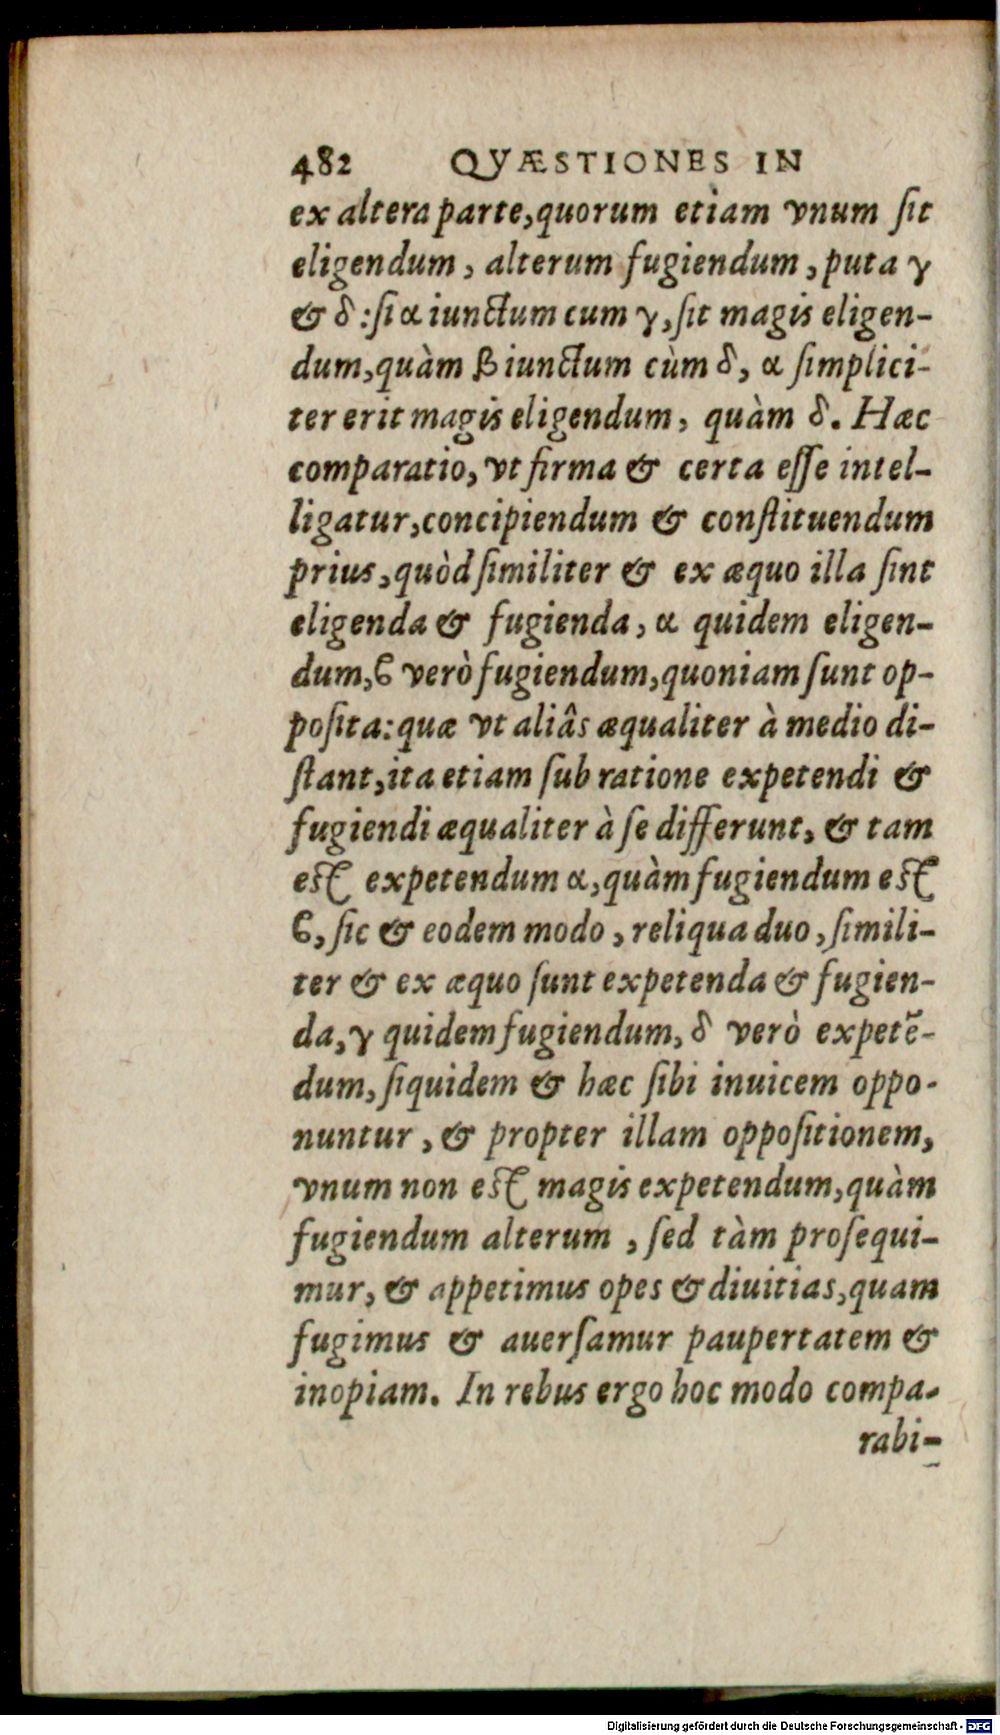 482 QVÆSTIONES IN
ex altera parte, quorum etiam vnum ſit
eligendum, alterum fugiendum, puta γ
& δ: ſi α iunctum cum γ, ſit magis eligen-
dum, quàm β iunctum cùm δ, α ſimplici-
ter erit magis eligendum, quàm δ. Hæc
comparatio, vt firma & certa eſſe intel-
ligatur, concipiendum & conſtituendum
prius, quòd ſimiliter & ex æquo illa ſint
eligenda & fugienda, α quidem eligen-
dum, ϐ verò fugiendum, quoniam ſunt op-
poſita: quæ vt aliâs æqualiter à medio di-
ſtant, ita etiam ſub ratione expetendi &
fugiendi æqualiter à ſe differunt, & tam
eſt expetendum α, quàm fugiendum eſt
ϐ, ſic & eodem modo, reliqua duo, ſimili-
ter & ex æquo ſunt expetenda & fugien-
da, γ quidem fugiendum, δ verò expetē-
dum, ſiquidem & hæc ſibi inuicem oppo-
nuntur, & propter illam oppoſitionem,
vnum non eſt magis expetendum, quàm
fugiendum alterum, ſed tàm proſequi-
mur, & appetimus opes & diuitias, quam
fugimus & auerſamur paupertatem &
inopiam. In rebus ergo hoc modo compa-
rabi-
Digitalisierung gefördert durch die Deutsche Forschungsgemeinschaft - DFG